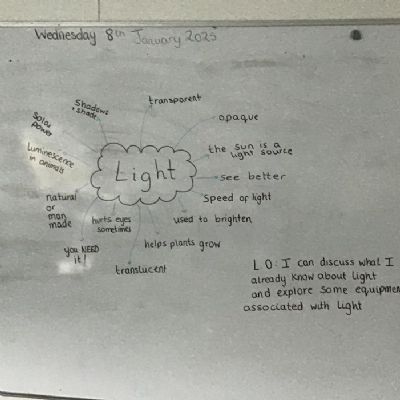 Wednesday 8th January 2025
transparent
Shadows
+ shade
opaque
Solar
power
the sun is a
light source
Luminescence
in animals
Light
see better
natural
or
man
made
Speed of light
hurts eyes
sometimes
used to brighten
you NEED
it!
helps plants grow
translucent
LO: I can discuss what I
already know about light
and explore some equipmen
associated with light